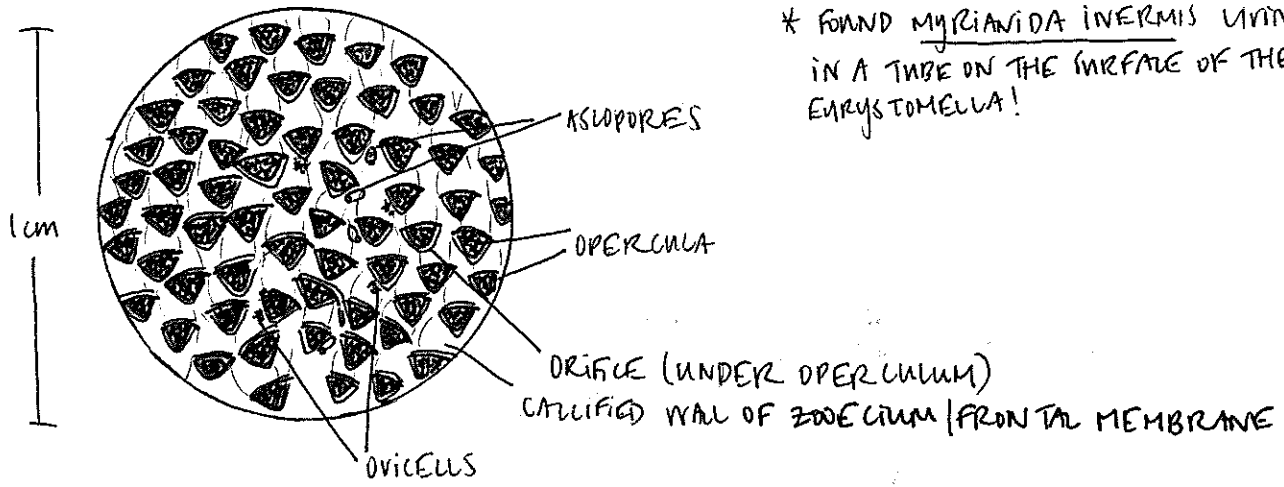 * FOUND MYRIANIDA INERMIS
IN A TUBE ON THE SURFACE OF THE
EURYSTOMELLA!
1cm
ASCOPORES
OPERCULA
ORIFICE (UNDER OPERCULUM)
CALCIFIED WALL OF ZOOECIUM/FRONTAL MEMBRANE
OVICELLS